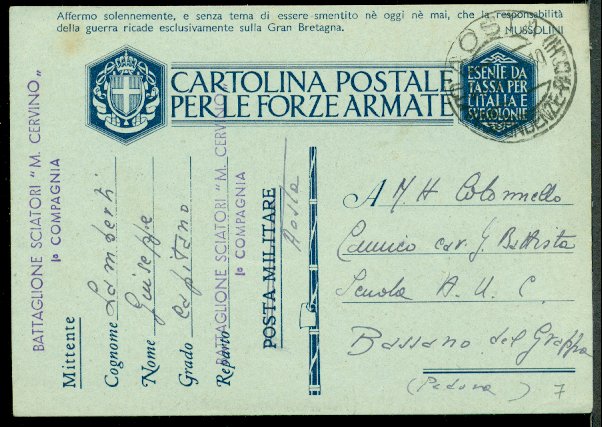 Affermo solennemente, e senza tema di essere smentito nè oggi nè mai, che la responsabilità
della guerra ricade esclusivamente sulla Gran Bretagna.
MUSSOLINI
CARTOLINA POSTALE
PER LE FORZE ARMATE
ESENTE DA
TASSA PER
L'ITALIA E
SUE COLONIE
BATTAGLIONE SCIATORI "M. CERVINO"
1ª COMPAGNIA
Mittente
Cognome Lamberti
Nome Giuseppe
Grado Capitano
Reparto
BATTAGLIONE SCIATORI "M. CERVINO"
1ª COMPAGNIA
POSTA MILITARE
Aosta
A Colonnello
cav. G. Battista
Scuola A. U. C.
Bassano del Grappa
(Padova) 7